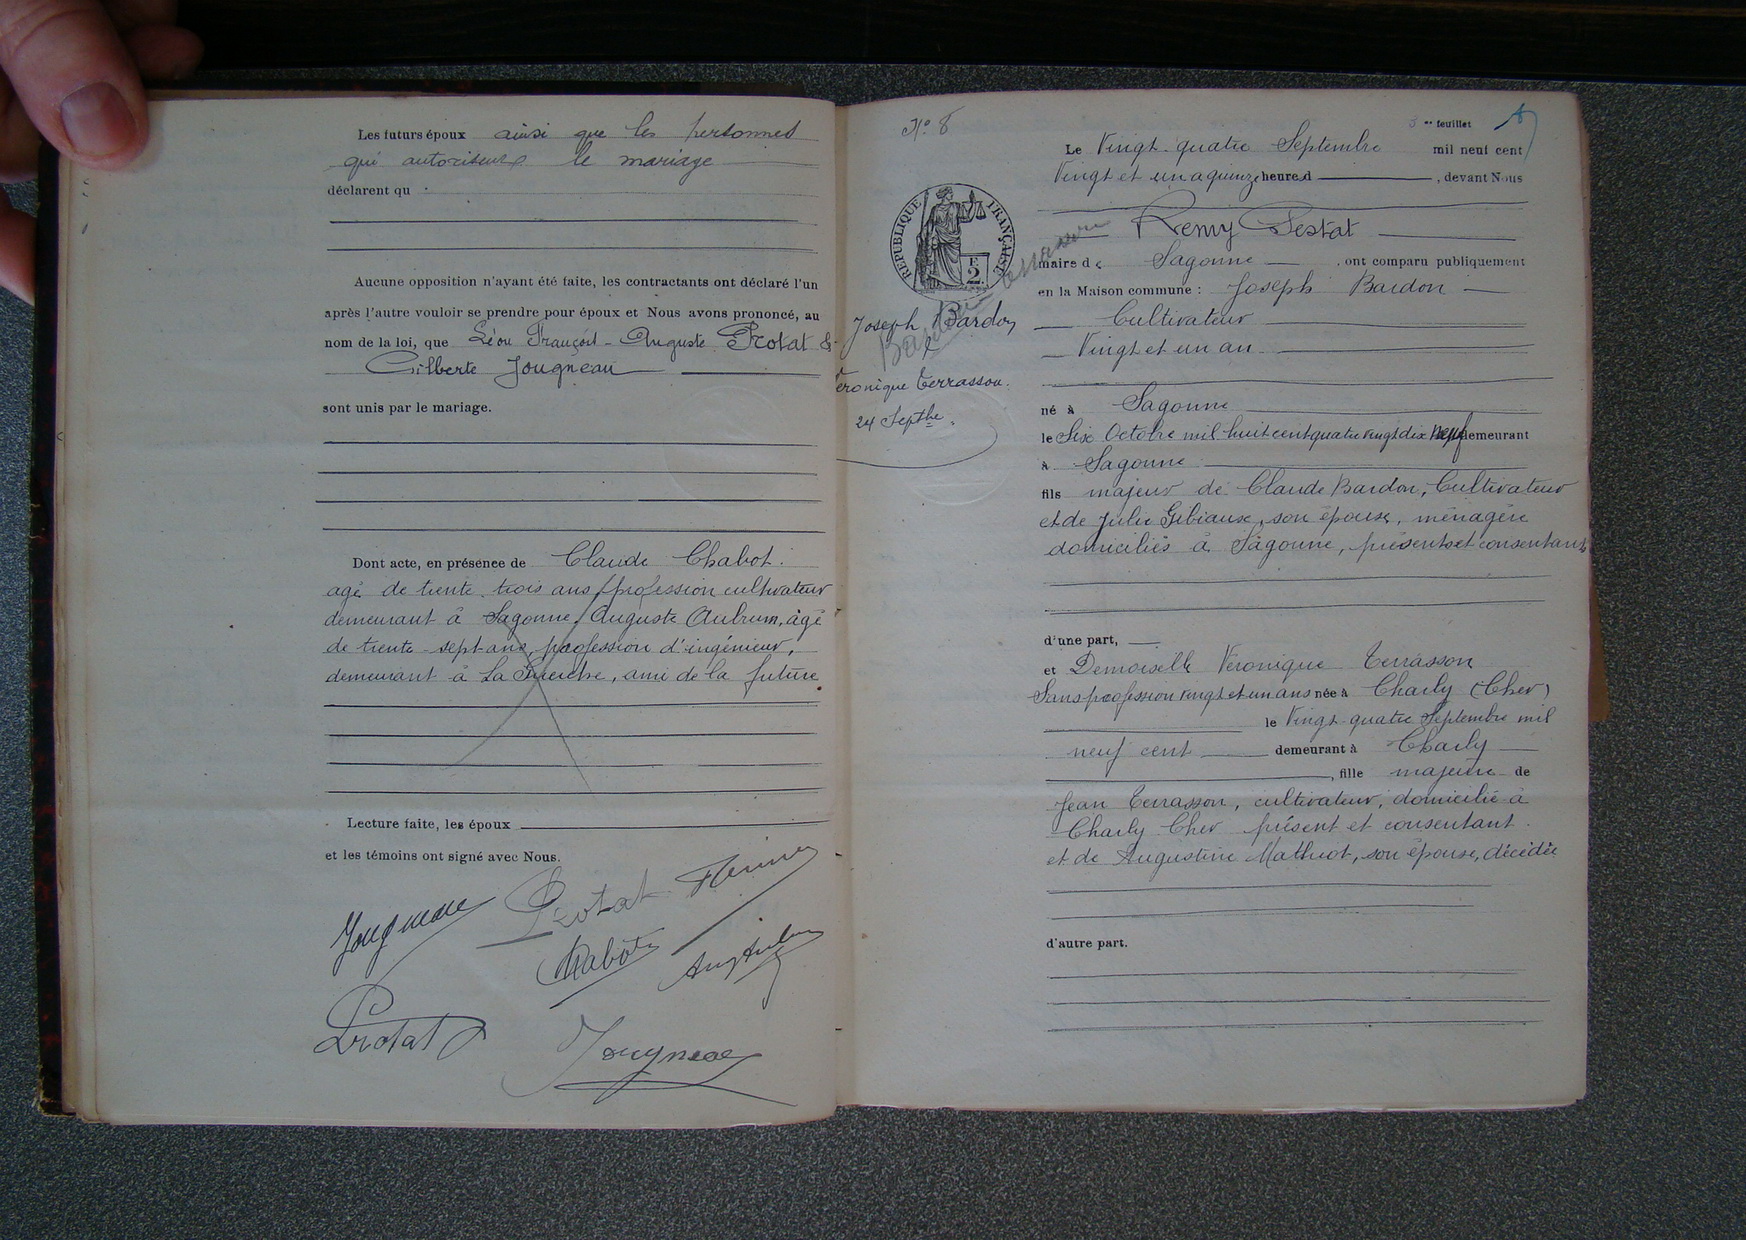 Les futurs époux ainsi que les personnes
qui autorisent le mariage
déclarent qu
Aucune opposition n'ayant été faite, les contractants ont déclaré l'un
après l'autre vouloir se prendre pour époux et Nous avons prononcé, au
nom de la loi, que Léon François-Auguste Protat &
Gilberte Jougneau
sont unis par le mariage.
Dont acte, en présence de Claude Chabot.
agé de trente trois ans, profession cultivateur
demeurant à Sagonne, Auguste Aubrun, âgé
de trente sept ans, profession d'ingénieur,
demeurant à La Guerche, ami de la future.
Lecture faite, les époux
et les témoins ont signé avec Nous.
Jougneau Protat
Chabot Aug Aubrun
Protat Jougneau
No 8
REPUBLIQUE FRANÇAISE
F.
2
Joseph Bardon
&
Veronique Terrasson.
24 Septbre.
Bardon Terrasson
3 me feuillet
Le Vingt-quatre Septembre mil neuf cent
Vingt et un a quinze heures, devant Nous
Remy Pestat
maire de Sagonne, ont comparu publiquement
en la Maison commune : Joseph Bardon
Cultivateur
Vingt et un an
né à Sagonne
le Six Octobre mil huit cent quatre vingt dix neuf demeurant
à Sagonne
fils majeur de Claude Bardon, Cultivateur
et de Julie Gibiaux, son épouse, ménagère
domiciliés à Sagonne, présents et consentants
d'une part,
et Demoiselle Veronique Terrasson
Sans profession vingt et un ans née à Charly (Cher)
le Vingt-quatre Septembre mil
neuf cent demeurant à Charly
, fille majeure de
Jean Terrasson, cultivateur, domicilié à
Charly Cher présent et consentant.
et de Augustine Mathiot, son épouse, décédée
d'autre part.